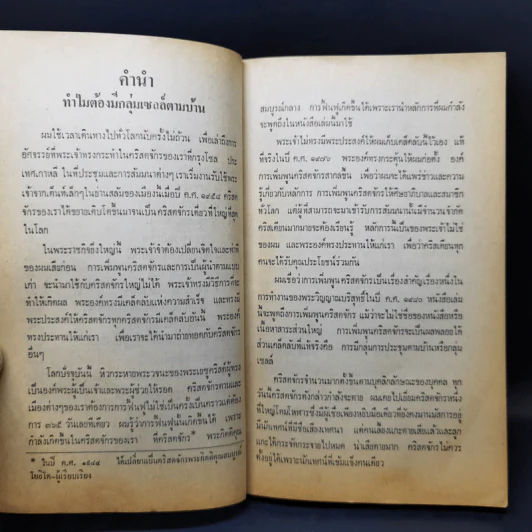 คำนำ
ทำไมต้องมีกลุ่มเซลล์ตามบ้าน
ผมใช้เวลาเดินทางไปทั่วโลกนับครั้งไม่ถ้วน เพื่อเล่าถึงการ
อัศจรรย์ที่พระเจ้าทรงกระทำในคริสตจักรของเราที่กรุงโซล ประ
เทศเกาหลี ในที่ประชุมและการสัมมนาต่างๆ เราเริ่มงานรับใช้พระ
เจ้าจากเต็นท์เล็กๆในย่านสลัมของเมืองนี้เมื่อปี ค.ศ. ๑๙๕๘ คริส
จักรของเราได้ขยายเติบโตขึ้นมาจนเป็นคริสตจักรเดียวที่ใหญ่ที่สุด
ในโลก
ในพระราชกิจอันใหญ่นี้ พระเจ้าจำต้องเปลี่ยนจิตใจและท่าที
ของผมเสียก่อน การเพิ่มพูนคริสตจักรและการเป็นผู้นำตามแบบ
เก่า จะนำมาใช้กับคริสตจักรใหญ่ไม่ได้ พระเจ้าทรงมีวิธีการที่จะ
ทำให้เกิดผล พระองค์ทรงมีเคล็ดลับแห่งความสำเร็จ และทรงมี
พระประสงค์ให้คริสตจักรทุกคริสตจักรมีเคล็ดลับอันนี้ พระองค์
ทรงประทานให้แก่เรา เพื่อเราจะได้นำมาถ่ายทอดกับคริสตจักร
อื่นๆ
โลกปัจจุบันนี้ หิวกระหายพระวจนะของพระเยซูคริสต์ผู้ทรง
เป็นองค์พระผู้เป็นเจ้าและพระผู้ช่วยให้รอด คริสตจักรตามและ
เมืองต่างๆของเราต้องการการฟื้นฟูไม่ใช่เป็นครั้งเป็นคราวแต่ต้อง
การ ๓๖๕ วันเลยทีเดียว ผมรู้ว่าการฟื้นฟูนั้นเกิดขึ้นได้ เพราะ
กำลังเกิดขึ้นในคริสตจักรของเรา ที่คริสตจักร* พระกิตติคุณ
* ในปี ค.ศ. ๑๙๘๔ ได้เปลี่ยนเป็นคริสตจักรพระกิตติคุณสมบูรณ์
โยอิโด-ผู้เรียบเรียง
สมบูรณ์กลาง การฟื้นฟูเกิดขึ้นได้เพราะเรานำหลักการที่ผมกำลัง
จะพูดถึงในหนังสือเล่มนี้มาใช้
พระเจ้าไม่ทรงมีพระประสงค์ให้ผมเก็บเคล็ดลับนี้ไว้เอง แท้
ที่จริงในปี ค.ศ. ๑๙๗๖ พระองค์ทรงกระตุ้นให้ผมก่อตั้ง องค์
การเพิ่มพูนคริสตจักรสากลขึ้น เพื่อว่าผมจะได้แพร่ข่าวและความ
รู้เกี่ยวกับหลักการ การเพิ่มพูนคริสตจักรให้ศิษยาภิบาลและสมาชิก
ทั่วโลก แต่ผู้ที่สามารถจะมาเข้ารับการสัมมนานั้นมีจำนวนจำกัด
คริสเตียนมากมายจะต้องเรียนรู้ หลักการนี้เป็นของพระเจ้าไม่ใช่
ของผม และพระองค์ทรงประทานให้แก่เรา เพื่อว่าคริสเตียนทุก
คนจะได้รับคุณประโยชน์ร่วมกัน
ผมเชื่อว่าการเพิ่มพูนคริสตจักรเป็นเรื่องสำคัญเรื่องหนึ่งใน
การทำงานของพระวิญญาณบริสุทธิ์ในปี ค.ศ. ๑๙๘๐ หนังสือเล่ม
นี้จะพูดถึงการเพิ่มพูนคริสตจักร แม้ว่าจะไม่ใช่ชื่อของหนังสือหรือ
เนื้อหาสาระส่วนใหญ่ การเพิ่มพูนคริสตจักรจะเป็นผลพลอยได้
ส่วนเคล็ดลับที่แท้จริงคือ การมีกลุ่มการประชุมตามบ้านหรือกลุ่ม
เซลล์
คริสตจักรจำนวนมากตั้งขึ้นตามบุคลิกลักษณะของบุคคล ทุก
วันนี้คริสตจักรดังกล่าวกำลังจะตาย ผมเคยไปเยี่ยมคริสตจักรหนึ่ง
ที่ใหญ่โตมโหฬารซึ่งมีผู้เชื่อเพียงหยิบมือเดียวยังคงนมัสการอยู่
มีนักเทศน์ที่มีชื่อเสียงเทศนา แต่คนเลี้ยงแกะตายเสียแล้วและลูก
แกะได้กระจัดกระจายไปหมด น่าเสียดายมาก คริสตจักรไม่ควร
ตั้งอยู่ได้เพราะนักเทศน์ที่เข้มแข็งคนเดียว